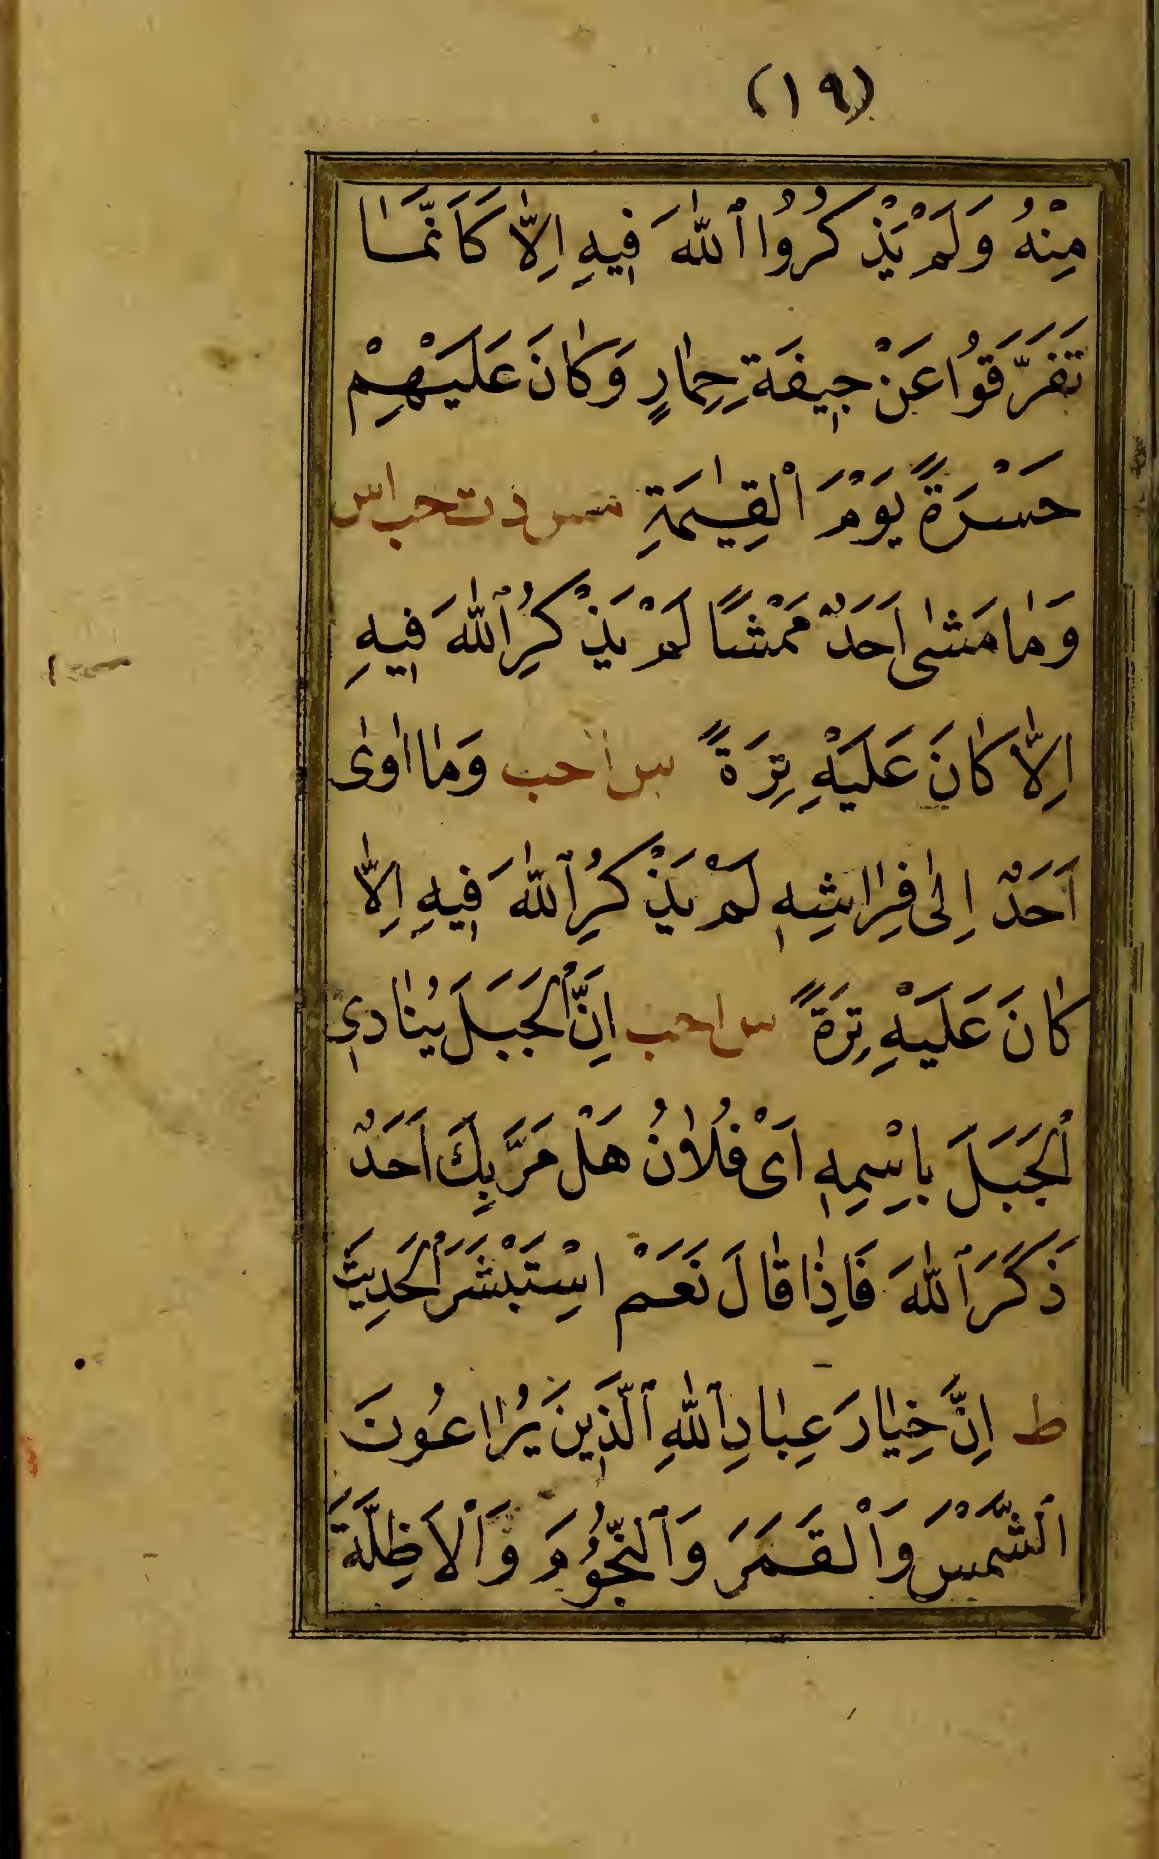 (١٩)
مِنْهُ وَلَمْ يَذْكُرُوا ٱللّٰهَ فِيهِ اِلَّا كَاَنَّمَا
تَفَرَّقُوا عَنْ جِيفَةِ حِمَارٍ وَكَانَ عَلَيْهِمْ
حَسْرَةً يَوْمَ الْقِيٰمَةِ مس د ت حب اس
وَمَا مَشٰى اَحَدٌ مَمْشًا لَمْ يَذْكُرِ ٱللّٰهَ فِيهِ
اِلَّا كَانَ عَلَيْهِ تِرَةً س ا حب وَمَا اَوٰى
اَحَدٌ اِلٰى فِرَاشِهِ لَمْ يَذْكُرِ ٱللّٰهَ فِيهِ اِلَّا
كَانَ عَلَيْهِ تِرَةً س ا حب اِنَّ الْجَبَلَ يُنَادِي
الْجَبَلَ بِاِسْمِهِ اَىْ فُلَانُ هَلْ مَرَّ بِكَ اَحَدٌ
ذَكَرَ ٱللّٰهَ فَاِذَا قَالَ نَعَمْ اِسْتَبْشَرَ الْحَدِيثَ
ط اِنَّ خِيَارَ عِبَادِ ٱللّٰهِ ٱلَّذِينَ يُرَاعُونَ
الشَّمْسَ وَالْقَمَرَ وَٱلنُّجُومَ وَالْاَظِلَّةَ